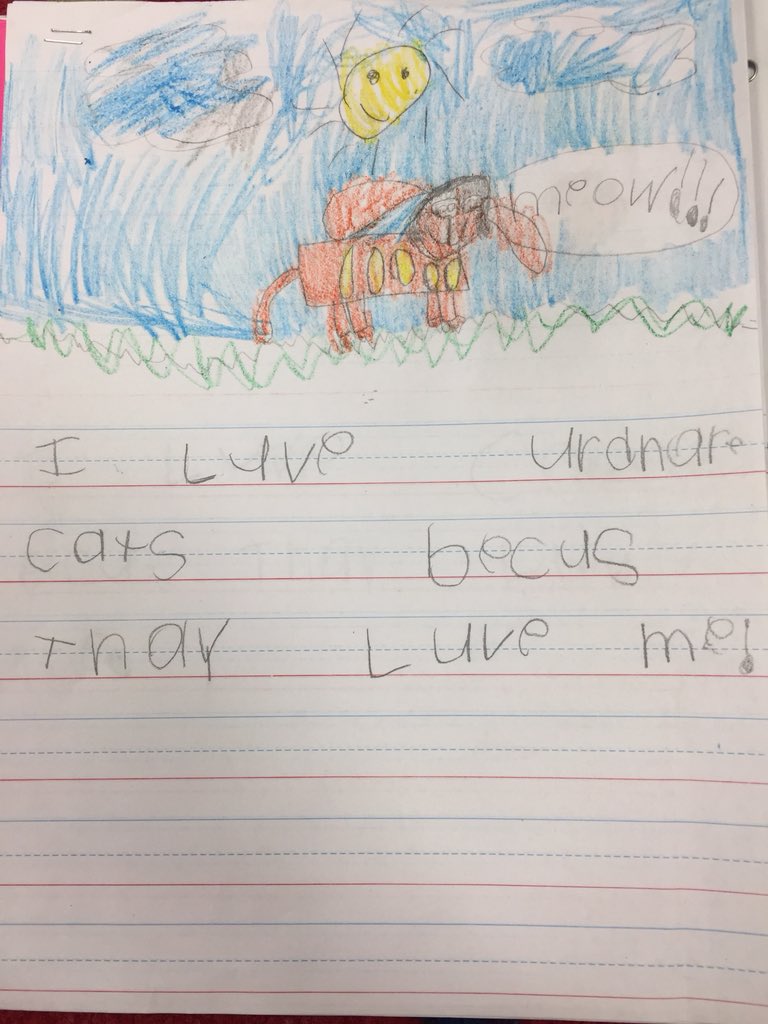 meow!!!
I Luve urdnare
cats becus
thay Luve me!